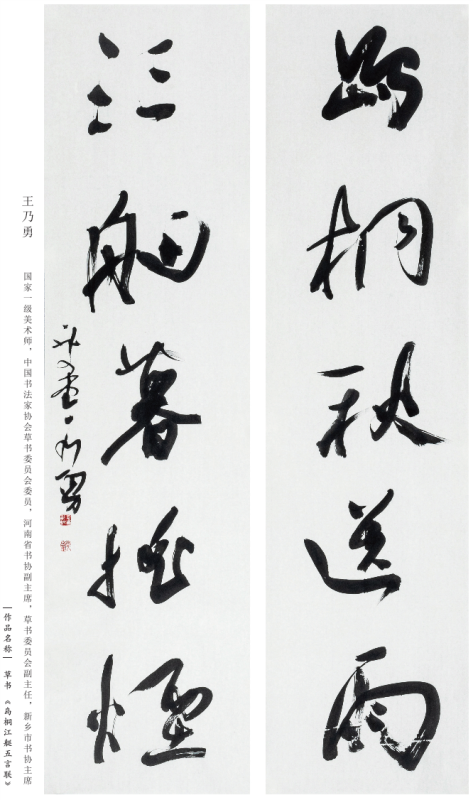 高桐秋送雨
江艇暮搖煙
乃勇
王乃勇
国家一级美术师，中国书法家协会草书委员会委员，河南省书协副主席，草书委员会副主任，新乡市书协主席
|作品名称| 草书 《高桐江艇五言联》